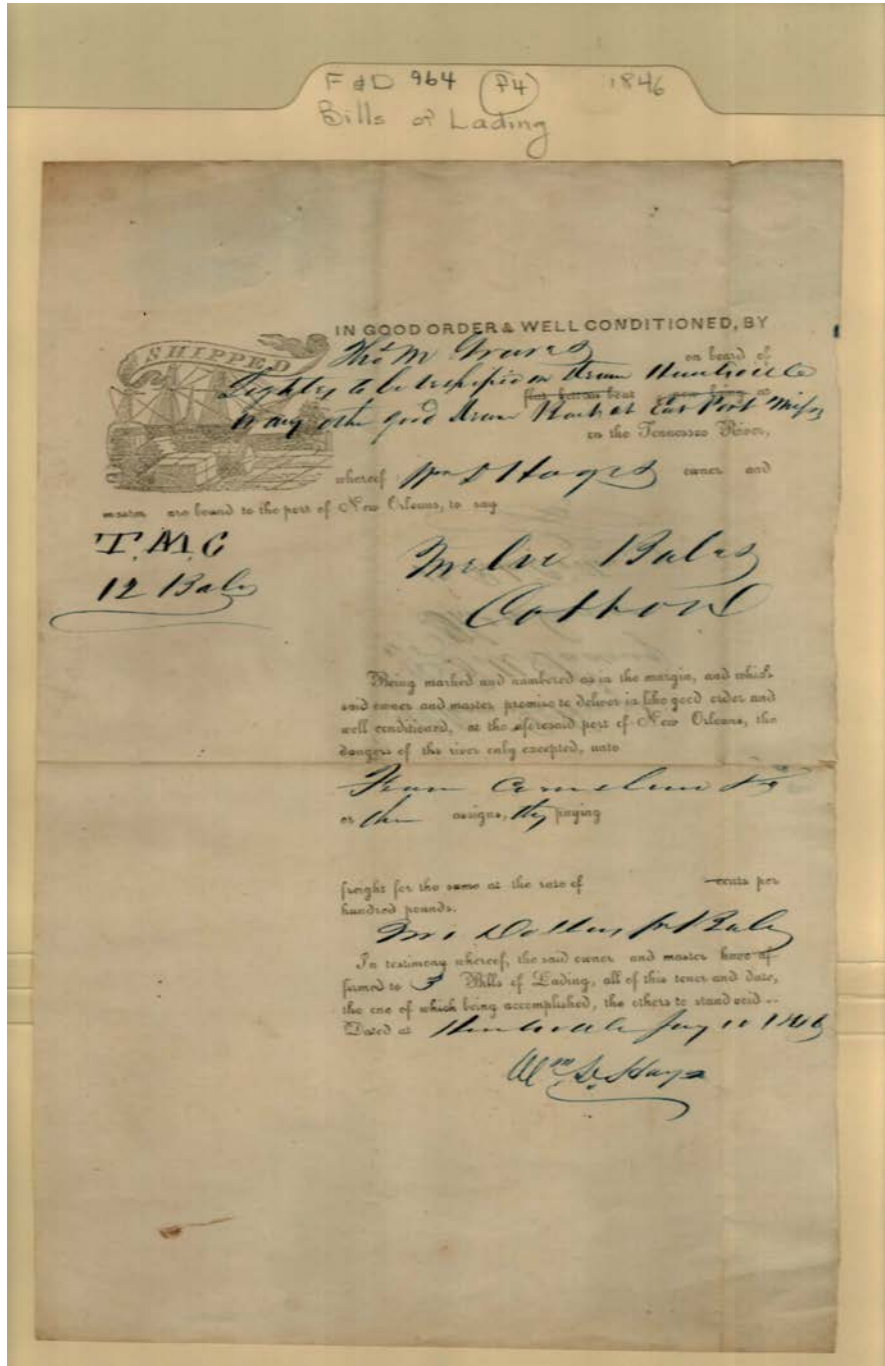 F & D 964 P4 1846
Bills of Lading
SHIPPED
IN GOOD ORDER & WELL CONDITIONED, BY
Thos M on board of
Lighter to be reshiped on Steam Huntsville
flat bottom boat now lying at
or any other good Steam Boat at East Port Miss
on the Tennessee River,
whereof Wm D Hays owner and
master are bound to the port of New Orleans, to say
T.M.G
12 Bales
Twelve Bales
Cotton
Being marked and numbered as in the margin, and which
said owner and master promise to deliver in like good order and
well conditioned, at the aforesaid port of New Orleans, the
dangers of the river only excepted, unto
or their assigns, they paying
freight for the same at the rate of cents per
hundred pounds.
Dollars pr Bale
In testimony whereof, the said owner and master have af-
firmed to 3 Bills of Lading, all of this tenor and date,
the one of which being accomplished, the others to stand void.
Dated at Huntsville Jany 1846
Wm D. Hays